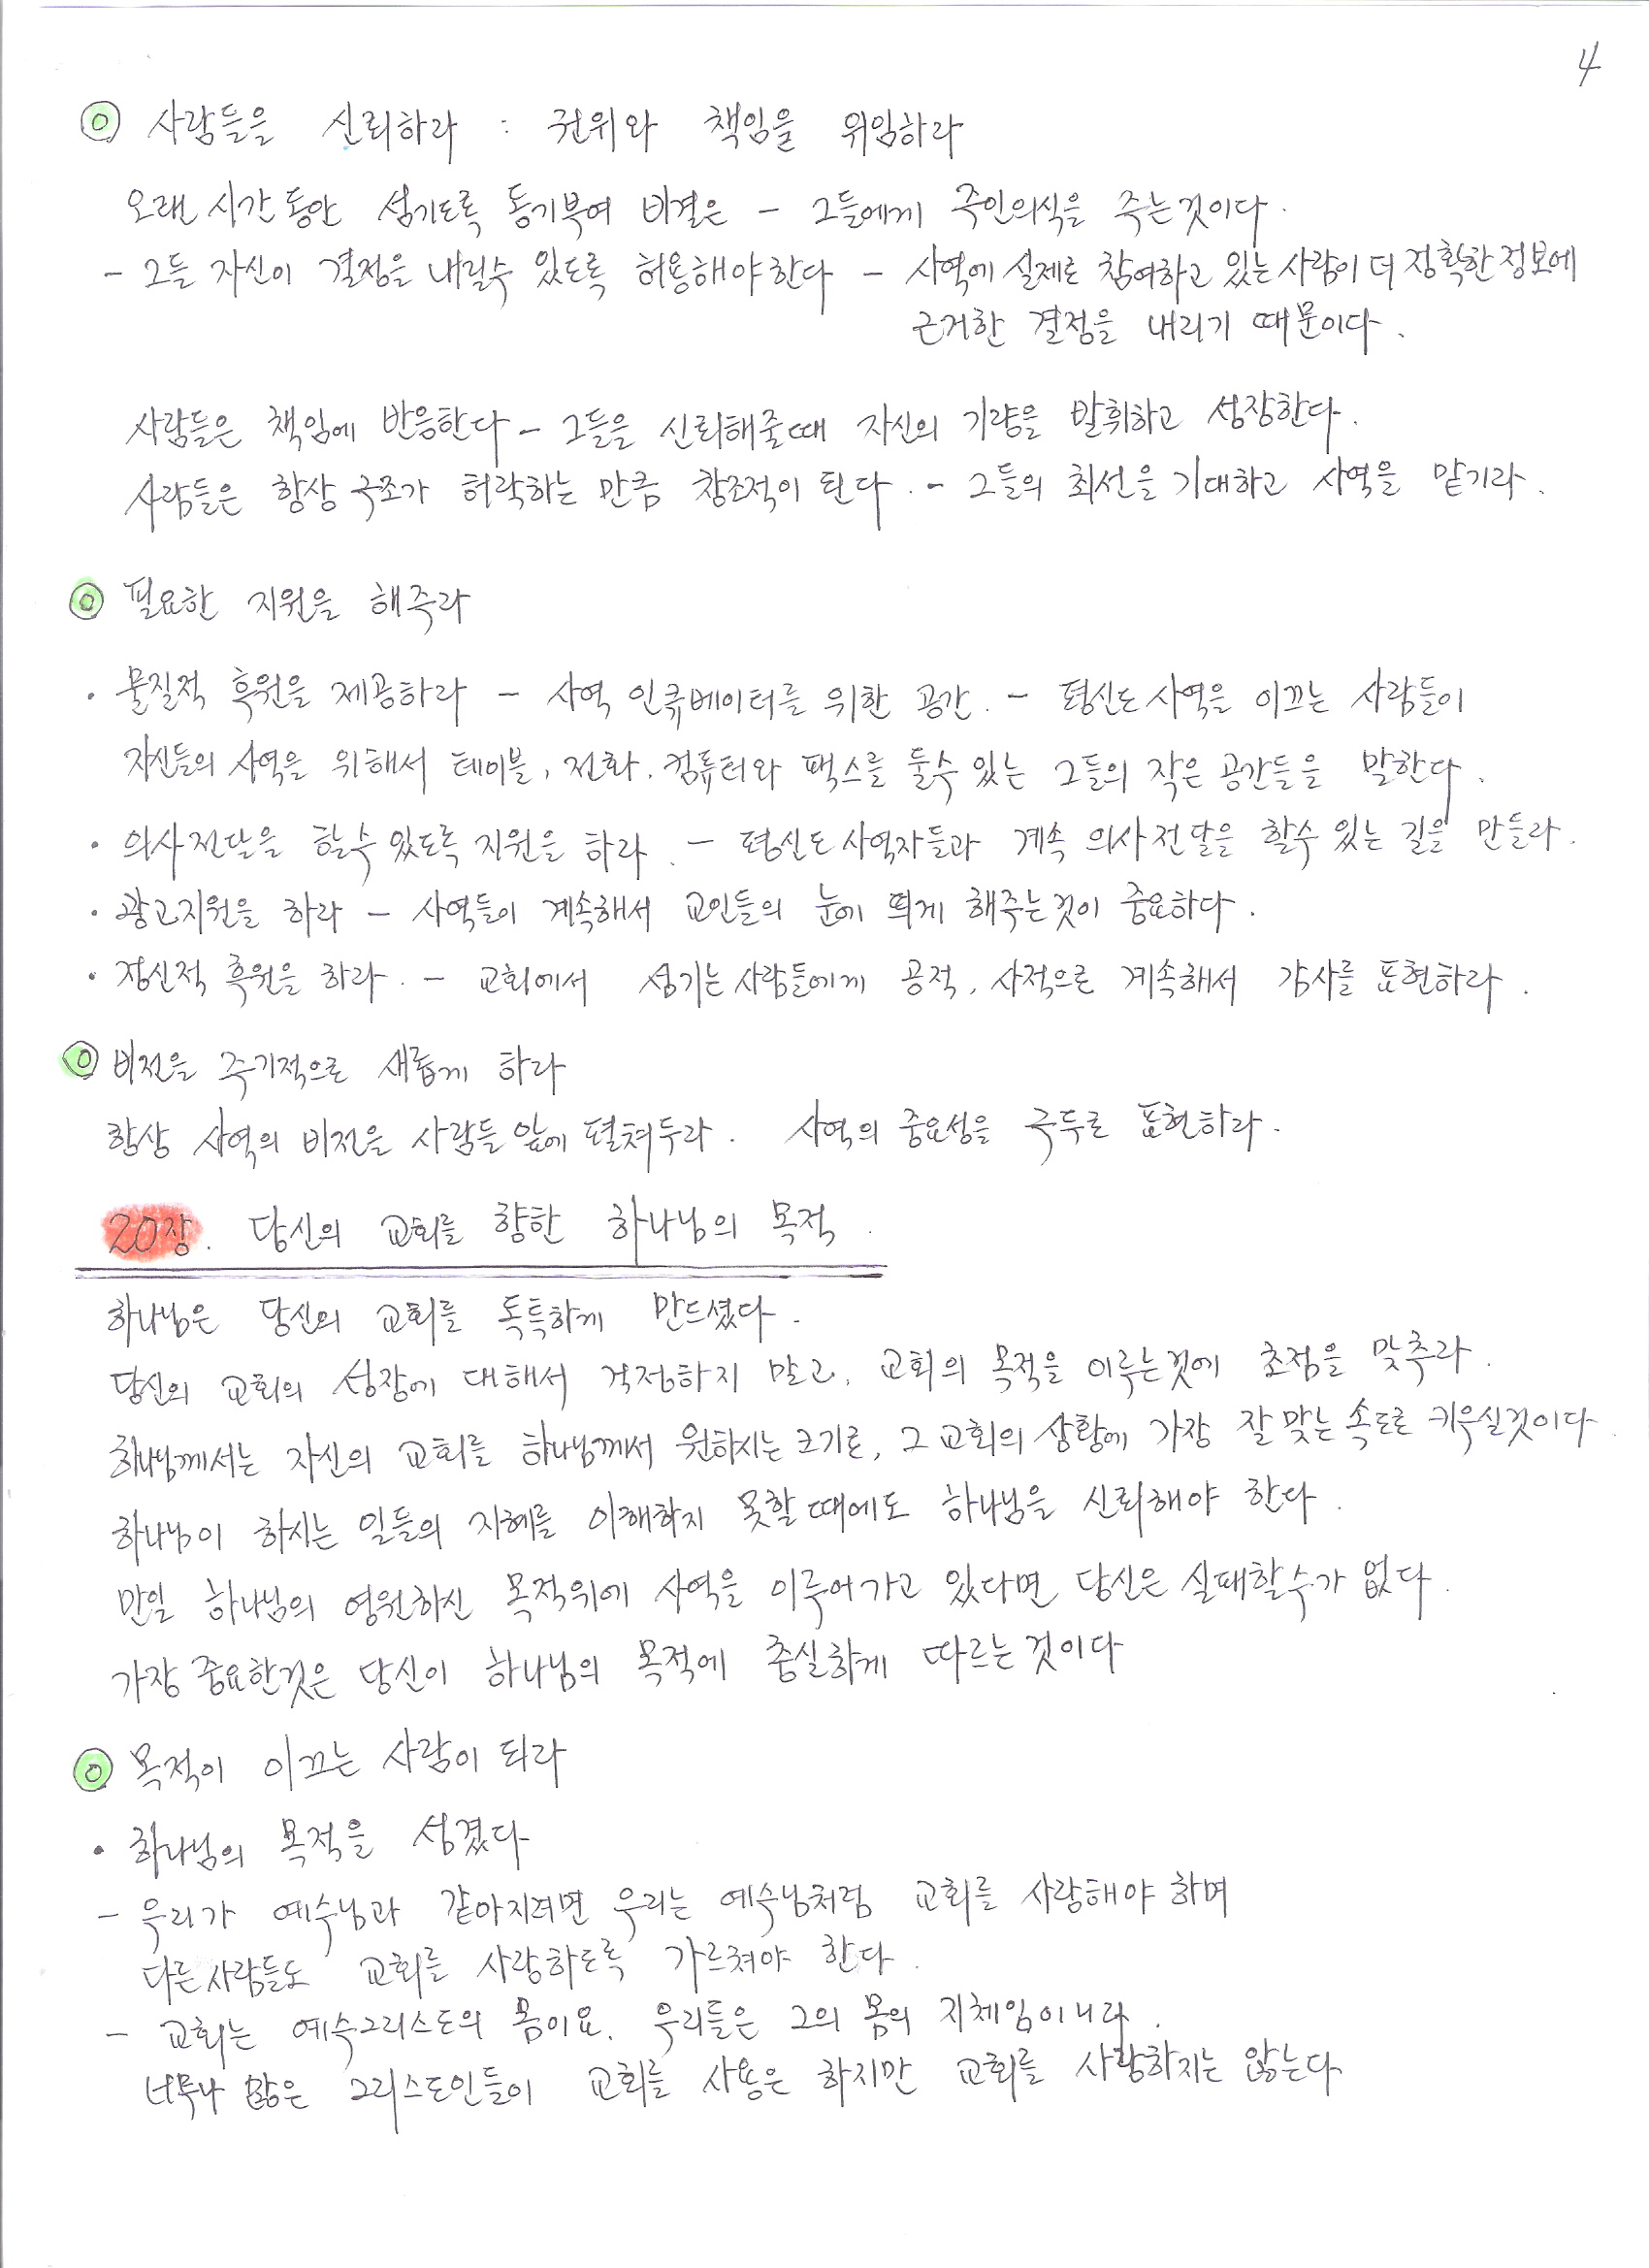 4
◎ 사람들을 신뢰하라 : 권위와 책임을 위임하라
오랜 시간 동안 섬기도록 동기부여 비결은 - 그들에게 주인의식을 주는것이다.
- 그들 자신이 결정을 내릴수 있도록 허용해야한다 - 사역에 실제로 참여하고 있는 사람이 더 정확한 정보에
근거한 결정을 내리기 때문이다.
사람들은 책임에 반응한다 - 그들을 신뢰해줄때 자신의 기량을 발휘하고 성장한다.
사람들은 항상 구조가 허락하는 만큼 창조적이 된다. - 그들의 최선을 기대하고 사역을 맡기라.
◎ 필요한 지원을 해주라
· 물질적 후원을 제공하라 - 사역 인큐베이터를 위한 공간. - 평신도 사역을 이끄는 사람들이
자신들의 사역을 위해서 테이블, 전화, 컴퓨터와 팩스를 둘수 있는 그들의 작은 공간들을 말한다.
· 의사전달을 할수 있도록 지원을 하라. - 평신도 사역자들과 계속 의사전달을 할수 있는 길을 만들라.
· 광고지원을 하라 - 사역들이 계속해서 교인들의 눈에 띄게 해주는것이 중요하다.
· 정신적 후원을 하라. - 교회에서 섬기는 사람들에게 공적, 사적으로 계속해서 감사를 표현하라.
◎ 비전을 주기적으로 새롭게 하라
항상 사역의 비전을 사람들 앞에 펼쳐두라. 사역의 중요성을 극두로 표현하라.
20장. 당신의 교회를 향한 하나님의 목적.
하나님은 당신의 교회를 독특하게 만드셨다.
당신의 교회의 성장에 대해서 걱정하지 말고, 교회의 목적을 이루는것에 초점을 맞추라.
하나님께서는 자신의 교회를 하나님께서 원하시는 크기로, 그 교회의 상황에 가장 잘 맞는 속도로 키우실것이다.
하나님이 하시는 일들의 지혜를 이해하지 못할 때에도 하나님을 신뢰해야 한다.
만일 하나님의 영원하신 목적위에 사역을 이루어가고 있다면 당신은 실패할수가 없다.
가장 중요한것은 당신이 하나님의 목적에 충실하게 따르는 것이다
◎ 목적이 이끄는 사람이 되라
• 하나님의 목적을 섬겼다
- 우리가 예수님과 같아지려면 우리는 예수님처럼 교회를 사랑해야 하며
다른 사람들도 교회를 사랑하도록 가르쳐야 한다.
- 교회는 예수그리스도의 몸이요, 우리들은 그의 몸의 지체임이니라.
너무나 많은 그리스도인들이 교회를 사용은 하지만 교회를 사랑하지는 않는다